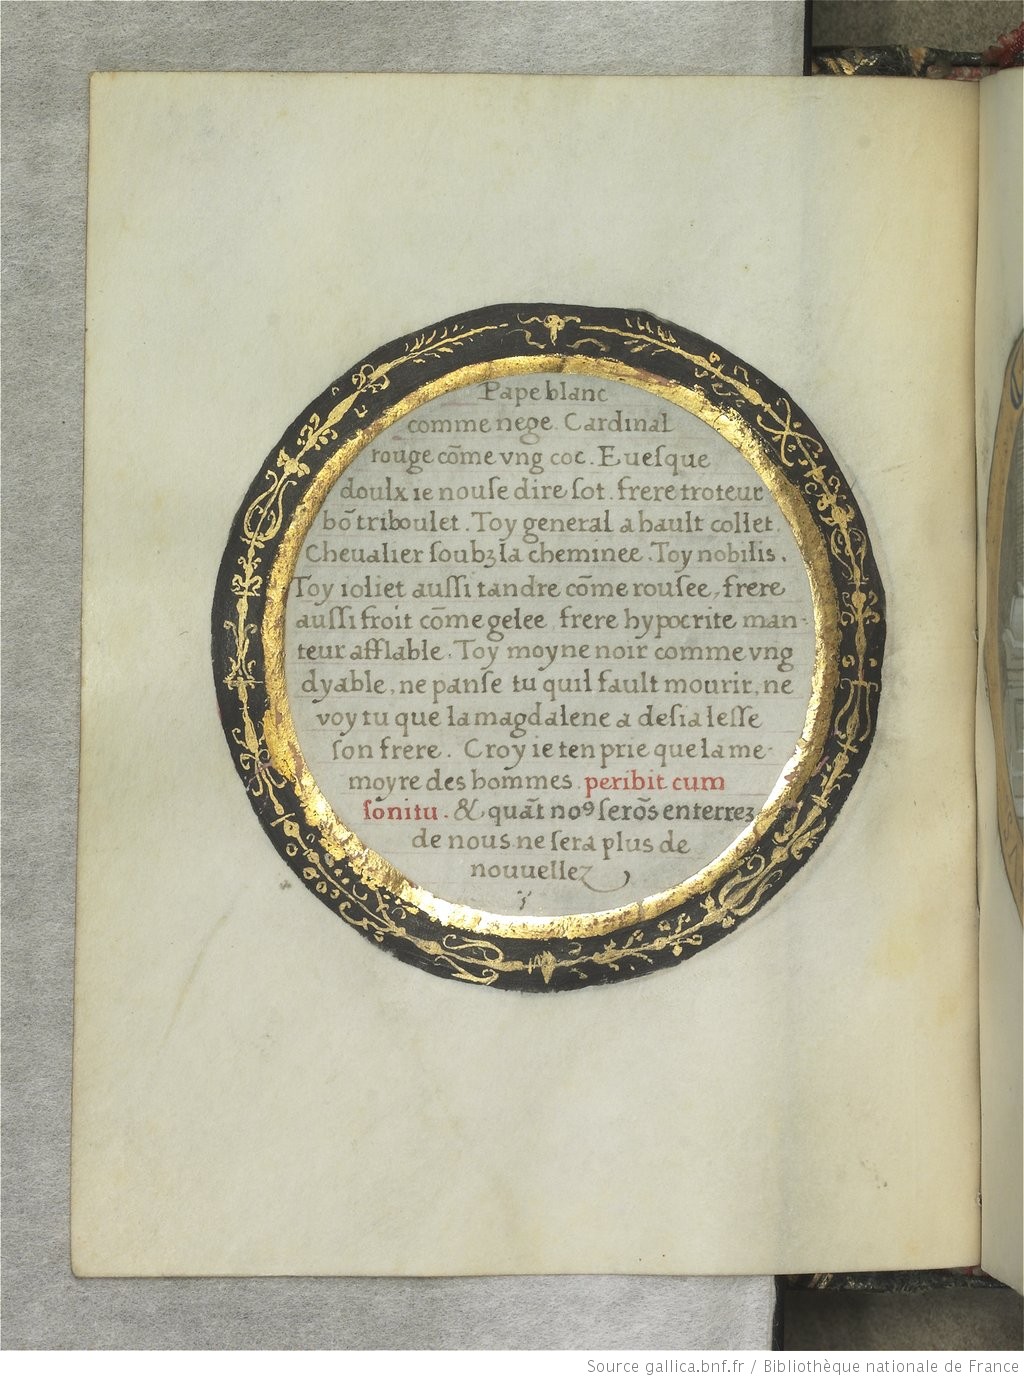 Pape blanc
comme nege. Cardinal
rouge cõme vng coc. Euesque
doulx ie nouse dire sot. frere troteur
bõ triboulet. Toy general a hault collet.
Cheualier soubz la cheminee. Toy nobilis.
Toy ioliet aussi tandre cõme rousee, frere
aussi froit cõme gelee. frere hypocrite man-
teur afflable. Toy moyne noir comme vng
dyable, ne panse tu quil fault mourir, ne
voy tu que la magdalene a desia lesse
son frere. Croy ie ten prie que la me-
moyre des hommes. peribit cum
sonitu. & quãt noꝰ serõs enterrez
de nous ne sera plus de
nouuellez
Source gallica.bnf.fr / Bibliothèque nationale de France